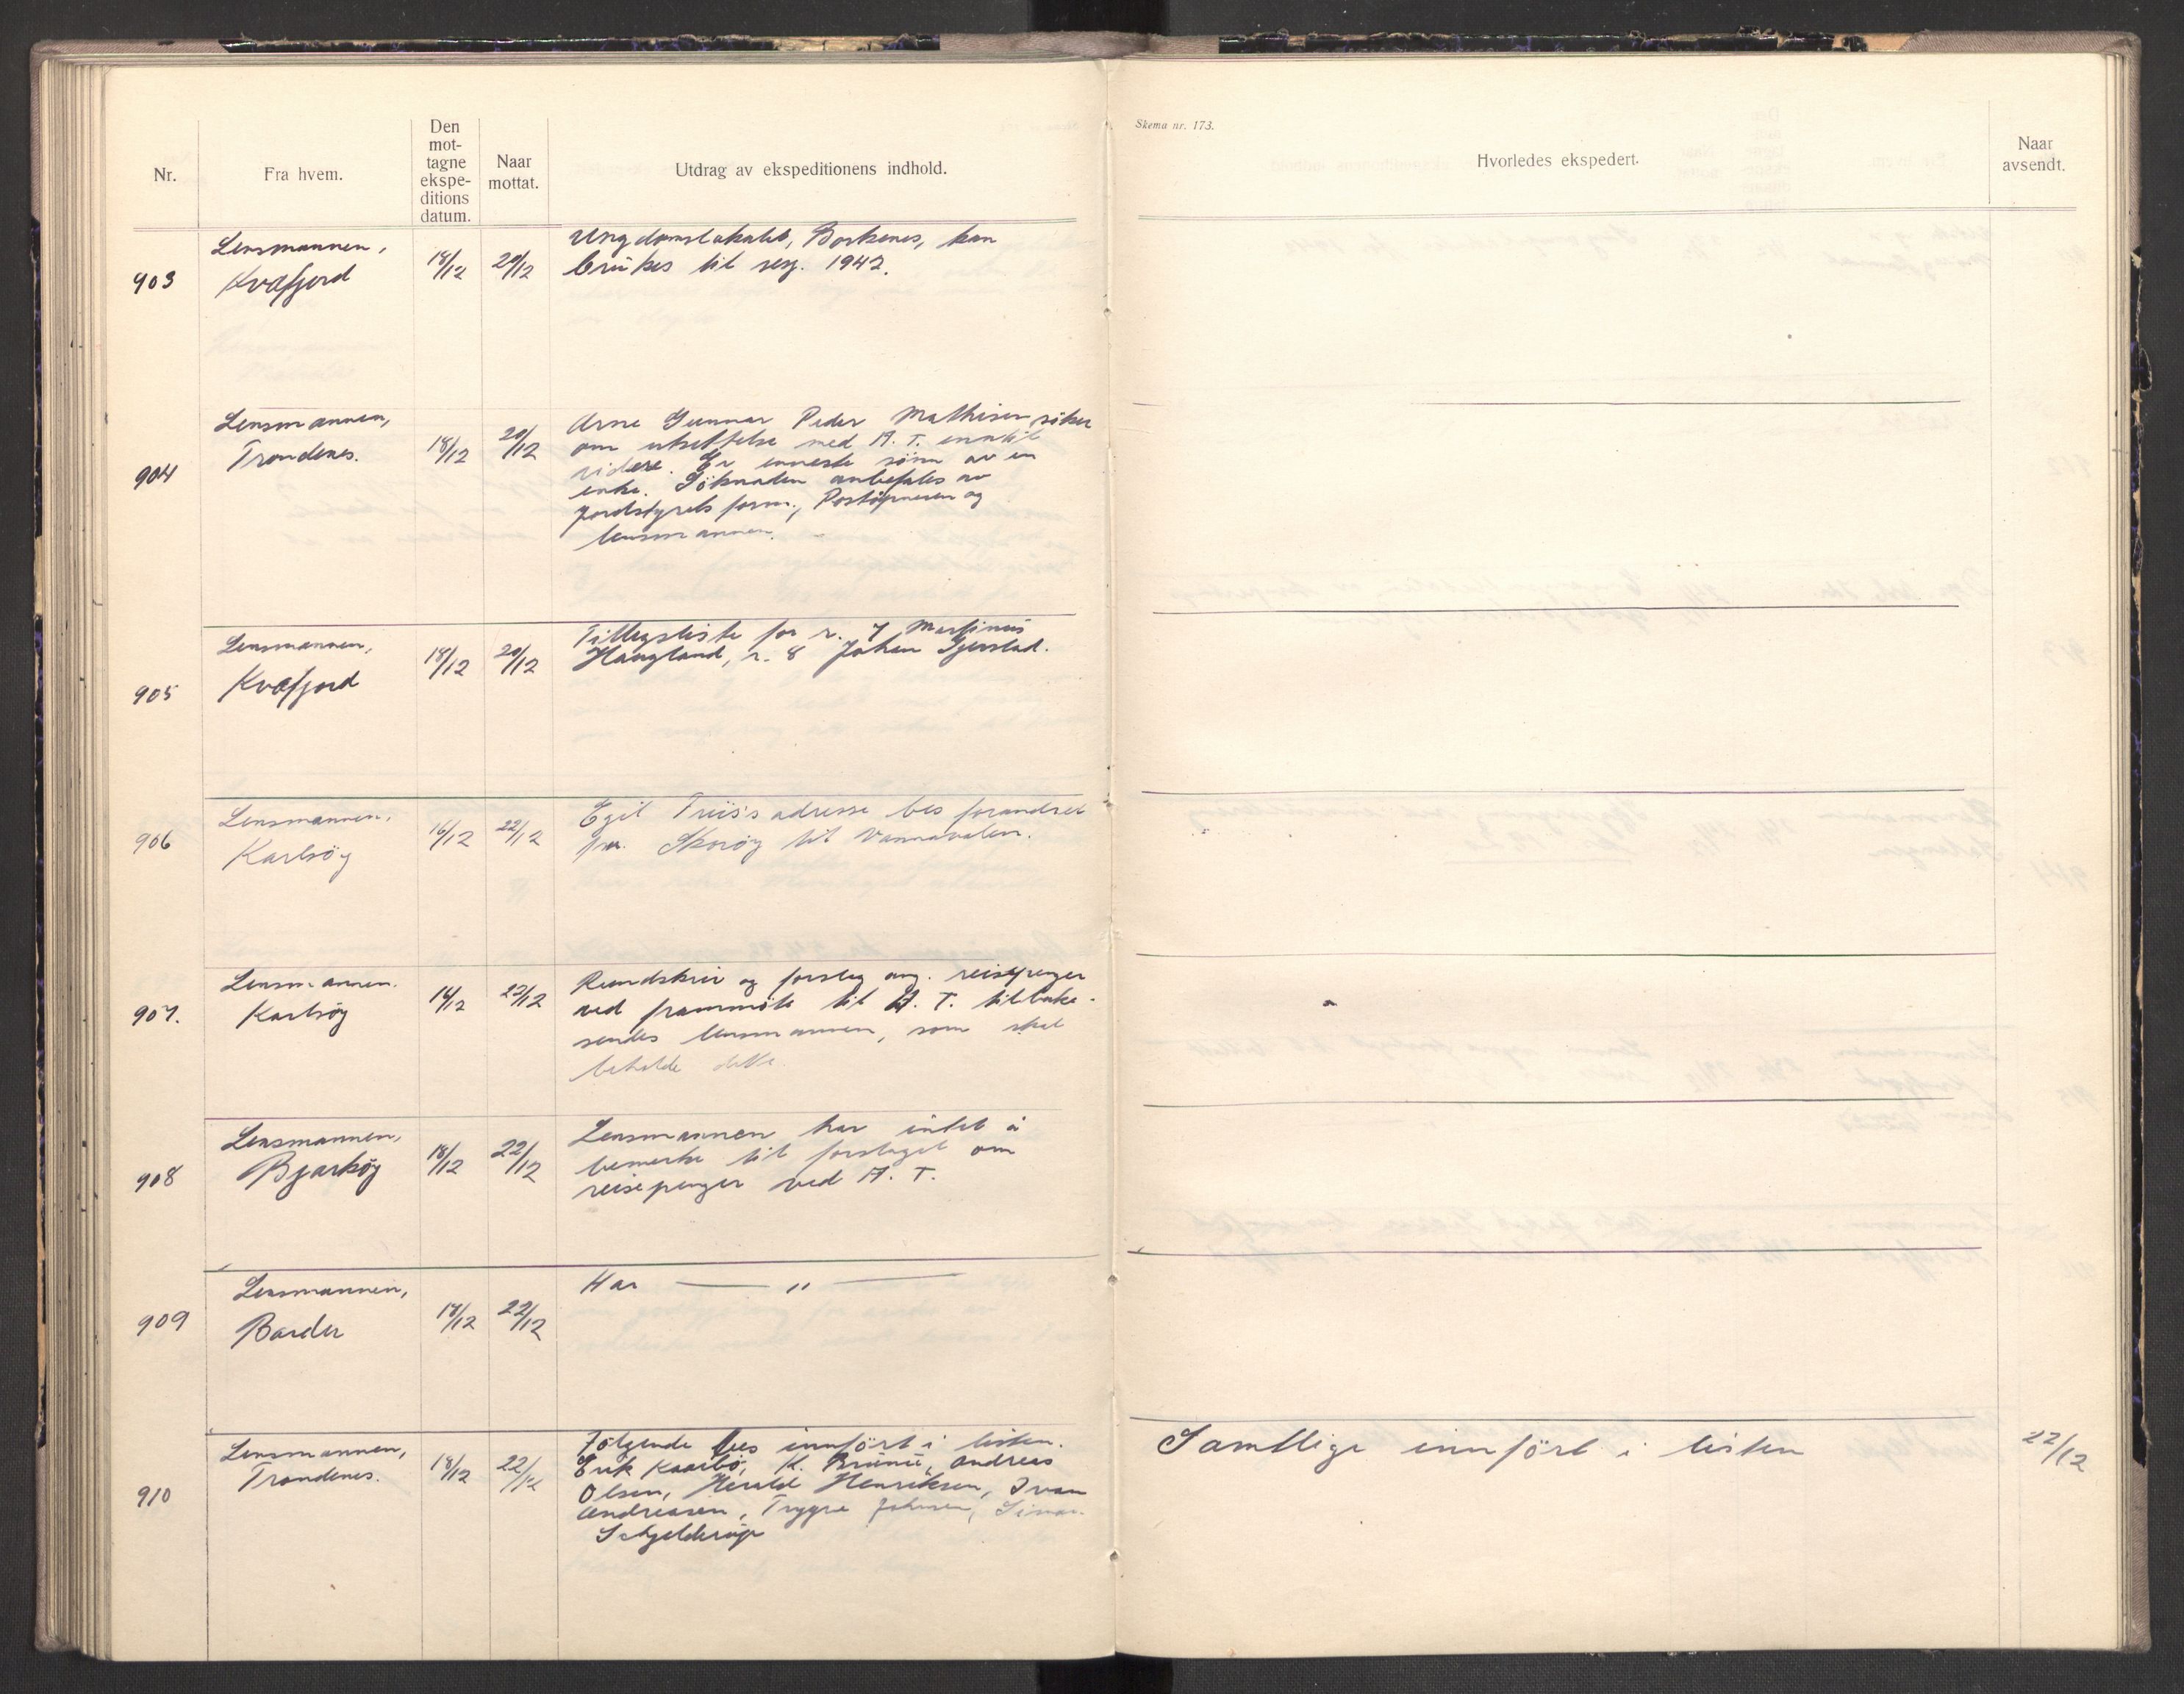 Nr.
Fra hvem.
Den
mot-
tagne
ekspe-
ditions
datum.
Naar
mottat.
Utdrag av ekspeditionens indhold.
Skema nr. 173.
Hvorledes ekspedert.
Naar
avsendt.
903
Lensmannen,
Kvæfjord
18/12
20/12
Ungdomslokalet, Borkenes, kan
brukes til sesj. 1942.
904
Lensmannen,
Trondenes.
18/12
20/12
Arne Gunnar Peder Mathisen söker
om utsettelse med A. T. inntil
videre. Er enneste sönn av en
enke. Söknaden anbefales av
Jordstyrets form., Postöpneren og
lensmannen.
905
Lensmannen,
Kvæfjord
18/12
20/12
Tilleggsliste for r. 7 Martinus
Haugland, r. 8 Johan Gjerstad.
906
Lensmannen,
Karlsöy
16/12
22/12
Egil adresse bes forandret
fra Skorøy til Vannavalen.
907.
Lensmannen.
Karlsöy
14/12
22/12
Rundskriv og forslag ang. reisepenger
ved frammöte til A. T. tilbake-
sendes lensmannen, som skal
beholde dette.
908
Lensmannen,
Bjarköy
18/12
22/12
Lensmannen har intet å
bemerke til forslaget om
reisepenger ved A. T.
909
Lensmannen,
Bardu
17/12
22/12
Har — " —
910
Lensmannen,
Trondenes.
18/12
22/12
Fölgende bes innfört i listen.
Erik Kaarbö, K. Andreas
Olsen, Harald Henriksen, Ivan
Andreasen, Trygve Johnsen,
Schjelderup
Samtlige innfört i listen
22/12